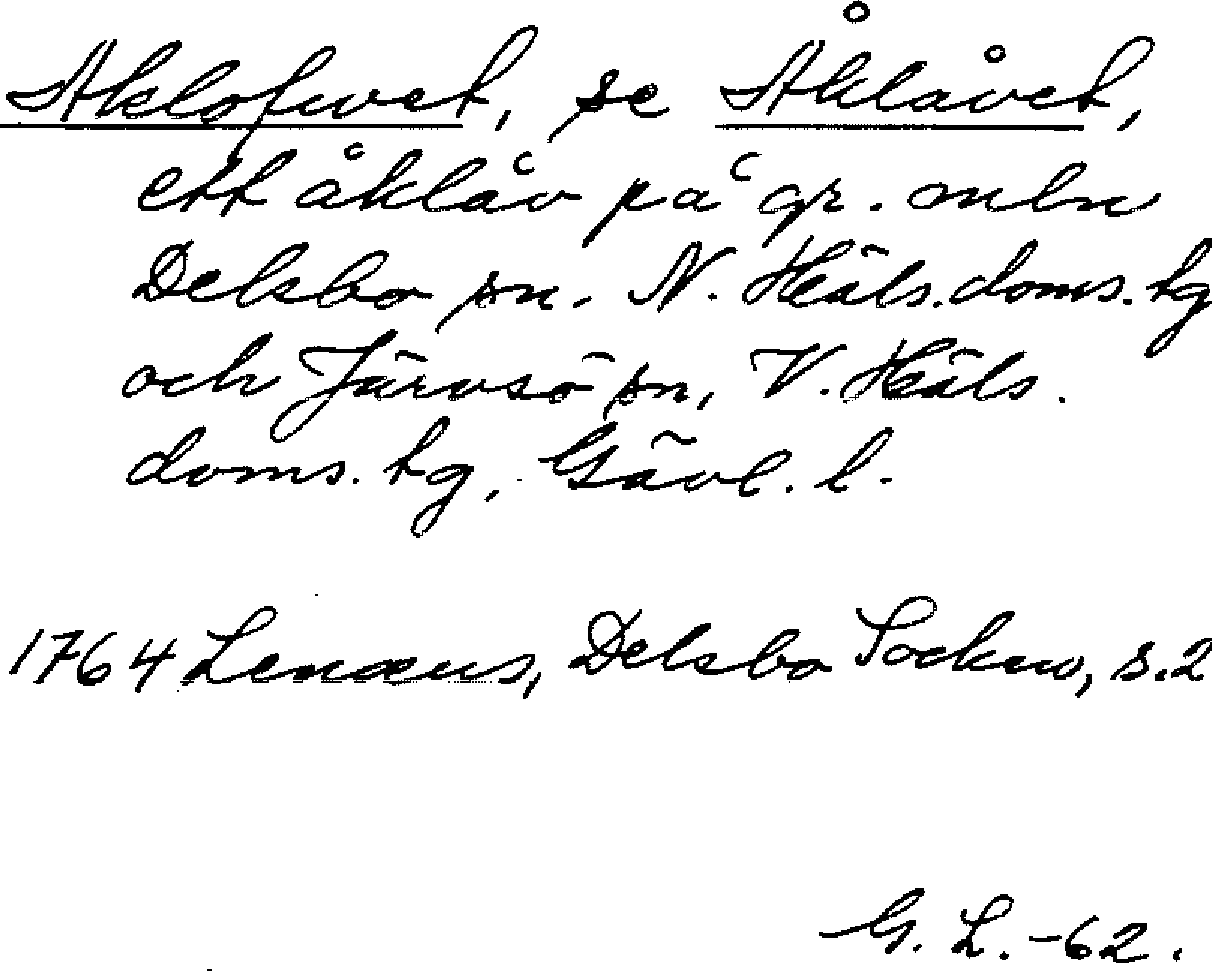 Aklofwet, se Åklåvet,
ett åklåv på gr. mln
Delsbo sn. N. Häls. doms. tg
och Järvsö sn, V. Häls.
doms. tg, Gävl. l.
1764 Lenæus, Delsbo Sockn, s. 2
G. L. -62.